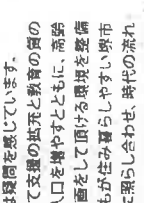 は疑問を感じています。
て支援の拡充と教育の質の
人口を増やすとともに、高齢
画をして頂ける環境を整備
もが住み暮らしやすい堺市
に照らし合わせ、時代の流れ